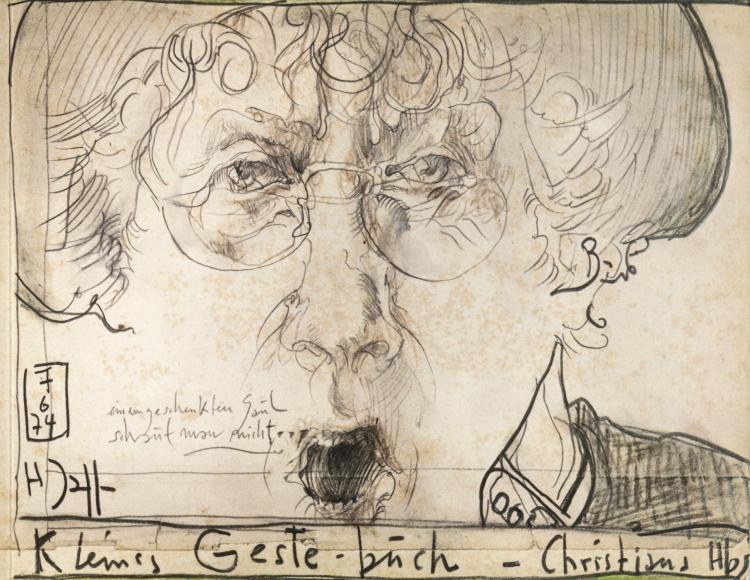 B
7
6
74
einem geschenkten Gaul
schaut man nicht...
Kleines Geste-buch - Christians Hbg